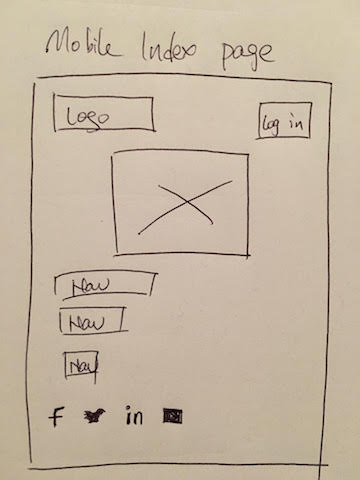 Mobile Index page
Logo
Log in
Nav
Nav
Nav
f in